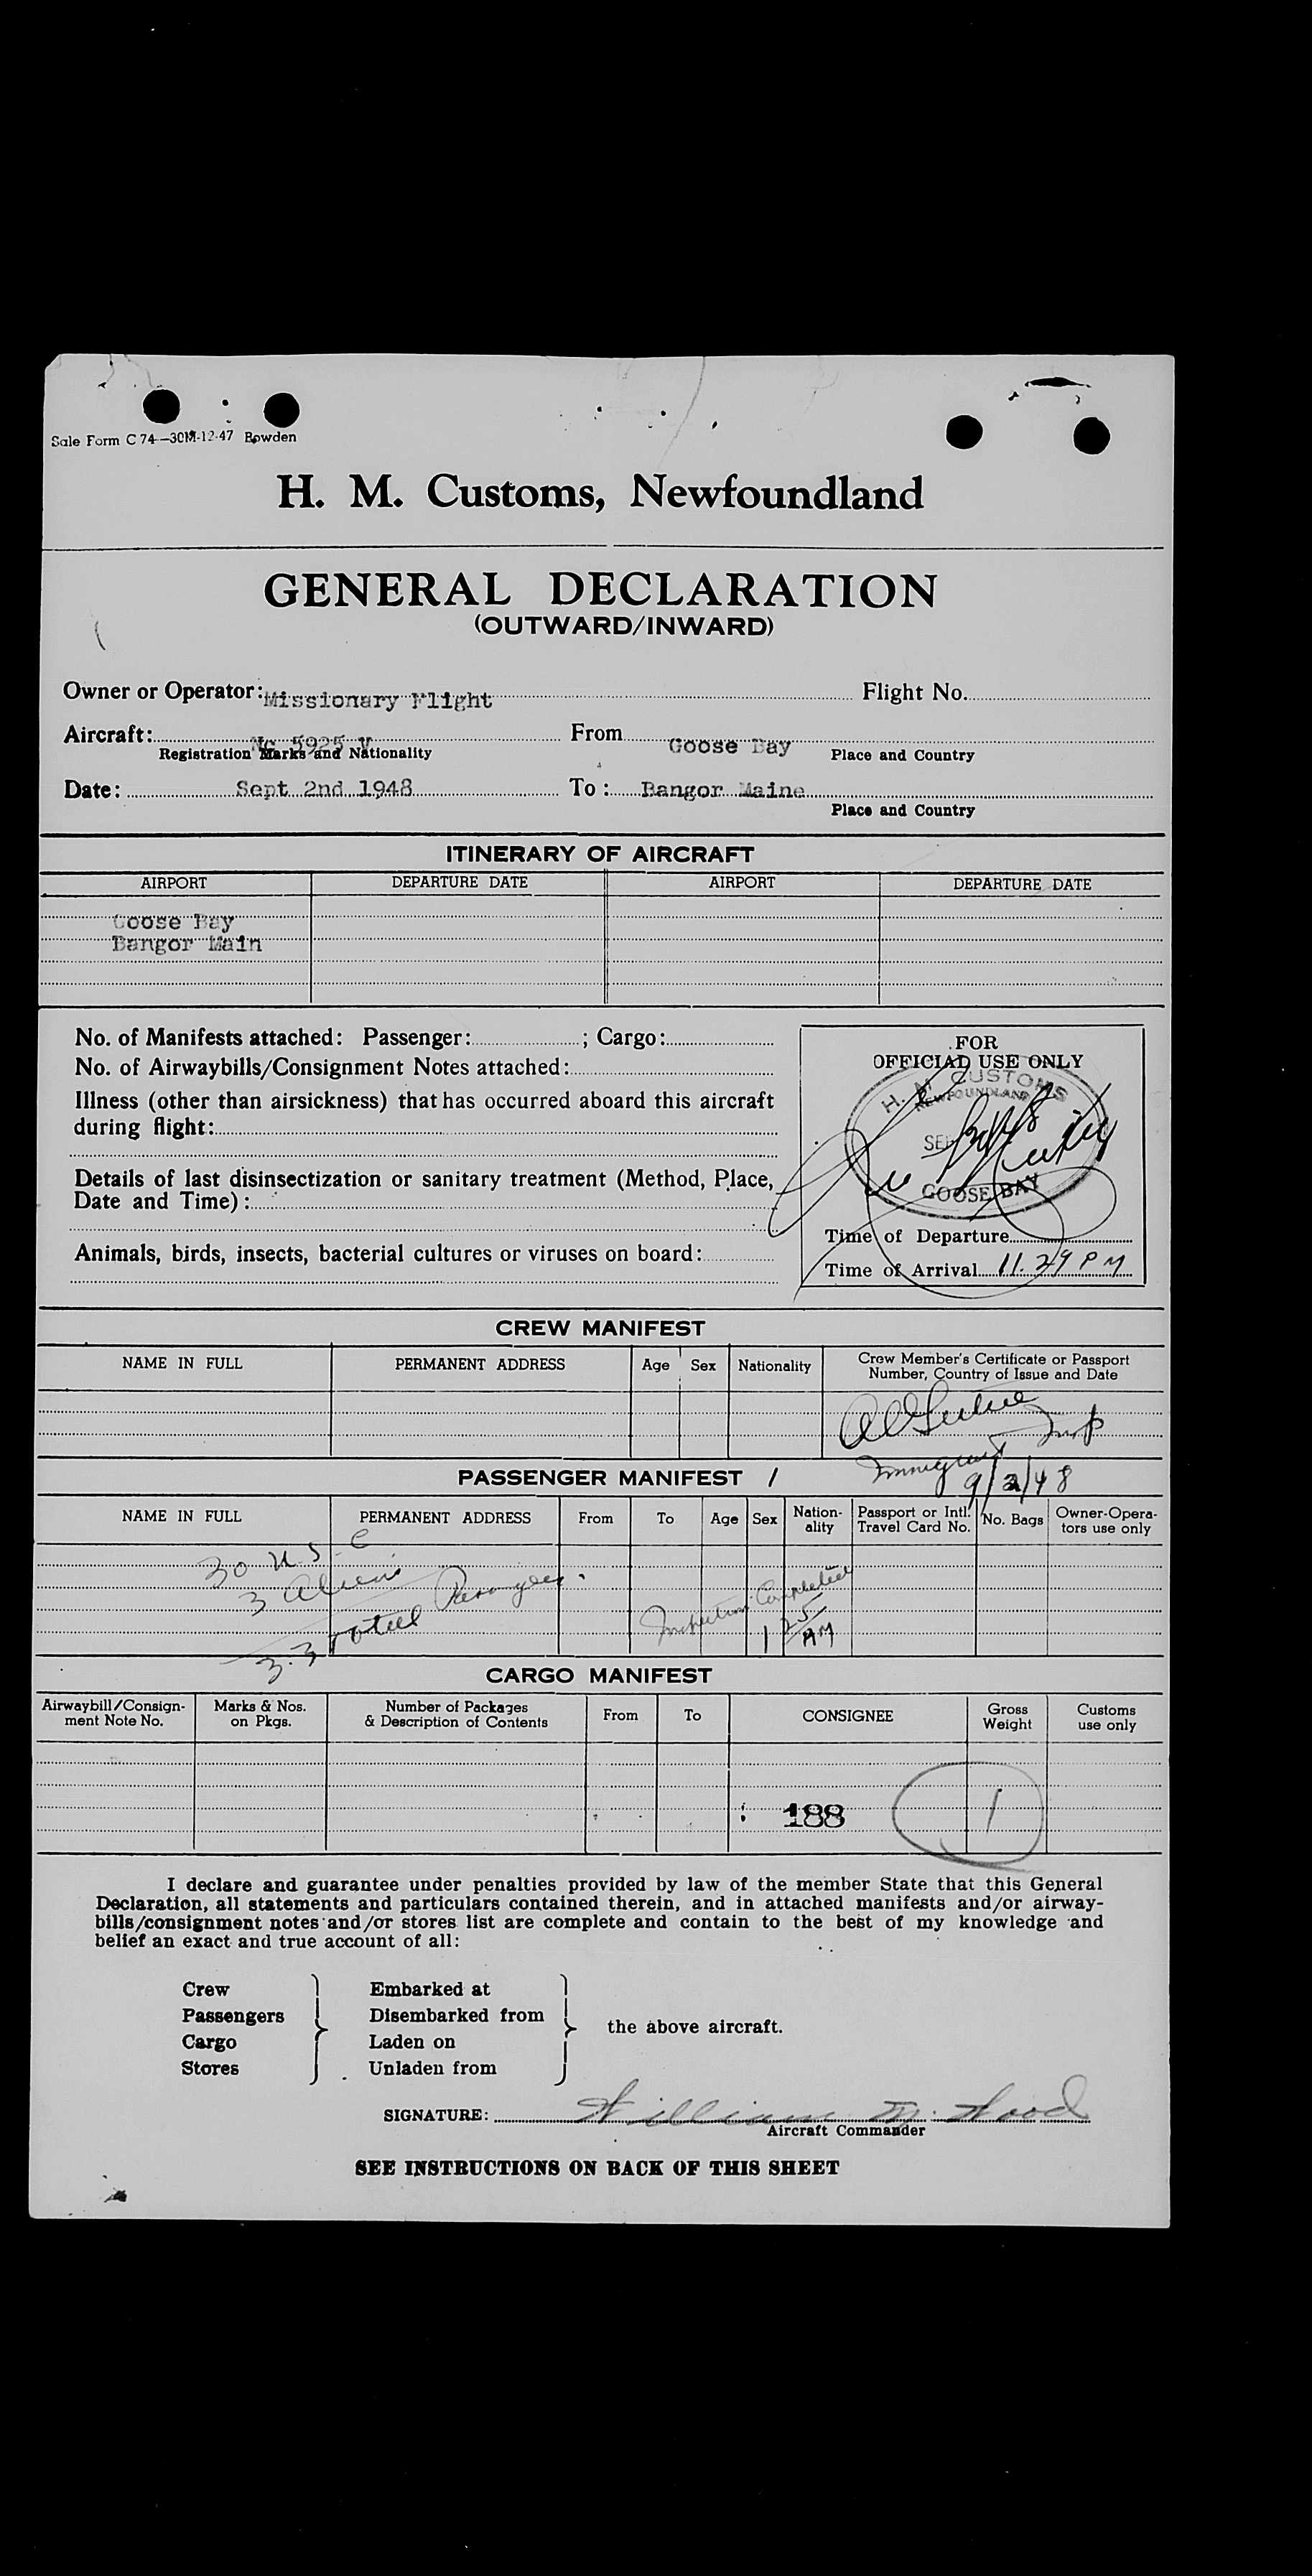 Sale Form C 74—30M-12-47 Bowden
H. M. Customs, Newfoundland
GENERAL DECLARATION
(OUTWARD/INWARD)
Owner or Operator: Missionary Flight Flight No.
Aircraft: Nc 5925 V From Goose Bay
Registration Marks and Nationality Place and Country
Date: Sept 2nd 1948 To: Bangor Maine
Place and Country
ITINERARY OF AIRCRAFT
AIRPORT DEPARTURE DATE AIRPORT DEPARTURE DATE
Goose Bay
Bangor Main
No. of Manifests attached: Passenger: ; Cargo:
No. of Airwaybills/Consignment Notes attached:
Illness (other than airsickness) that has occurred aboard this aircraft
during flight:
Details of last disinsectization or sanitary treatment (Method, Place,
Date and Time):
Animals, birds, insects, bacterial cultures or viruses on board:
FOR
OFFICIAL USE ONLY
H. M. CUSTOMS
NEWFOUNDLAND
GOOSE BAY
Time of Departure
Time of Arrival 11.29 PM
CREW MANIFEST
NAME IN FULL PERMANENT ADDRESS Age Sex Nationality Crew Member's Certificate or Passport
Number, Country of Issue and Date
Immigrant Insp
9/2/48
PASSENGER MANIFEST /
NAME IN FULL PERMANENT ADDRESS From To Age Sex Nation-
ality Passport or Intl.
Travel Card No. No. Bags Owner-Opera-
tors use only
30 U.S.C
3 Aliens
33 Total Passengers.
Inspection Completed
1 25 AM
CARGO MANIFEST
Airwaybill/Consign-
ment Note No. Marks & Nos.
on Pkgs. Number of Packages
& Description of Contents From To CONSIGNEE Gross
Weight Customs
use only
188 1
I declare and guarantee under penalties provided by law of the member State that this General
Declaration, all statements and particulars contained therein, and in attached manifests and/or airway-
bills/consignment notes and/or stores list are complete and contain to the best of my knowledge and
belief an exact and true account of all:
Crew Embarked at
Passengers Disembarked from
the above aircraft.
Cargo Laden on
Stores Unladen from
SIGNATURE: William D. Wood
Aircraft Commander
SEE INSTRUCTIONS ON BACK OF THIS SHEET